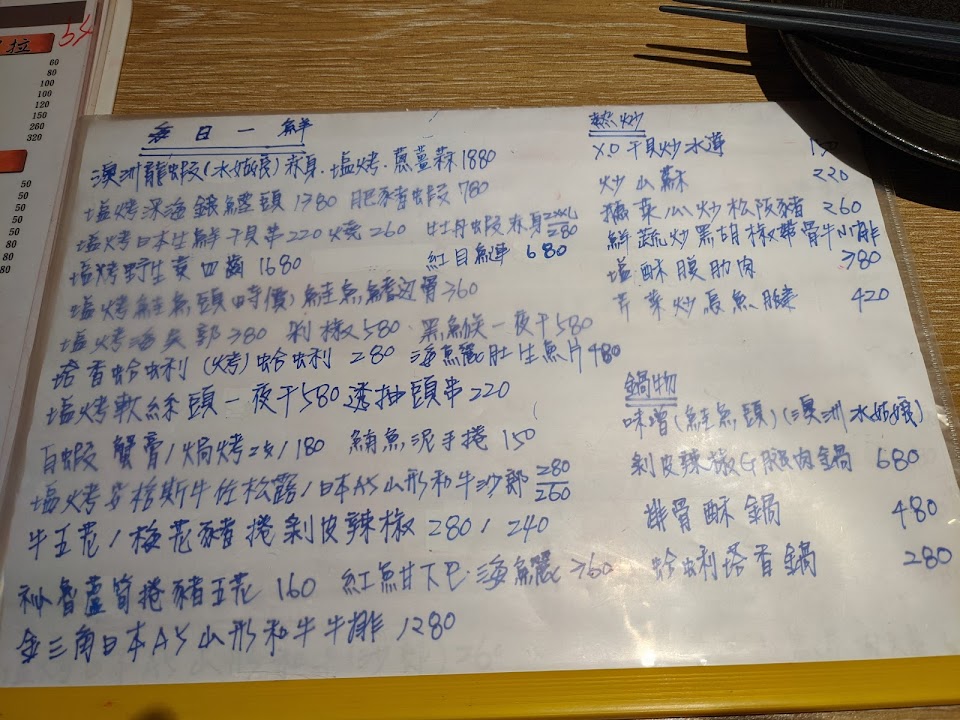 拉 54
60
80
100
100
120
150
260
320
50
50
50
50
80
80
80
每日一鮮
澳洲龍蝦(水姑娘)刺身.塩烤.蔥薑蒜1880
塩烤深海銀鱈頭1380 肥豬蝦780
塩烤日本生鮮干貝串220燒260 牡丹蝦刺身2XXL 280
塩烤野生黃四齒1680 紅目鰱680
塩烤鮭魚頭(時價)鮭魚鰭邊骨360
塩烤海吳郭380 剝椒580.黑魚一夜干580
塔香蛤蜊(烤)蛤蜊280 海鱺肚生魚片480
塩烤軟絲頭一夜干580透抽頭串220
白蝦蟹膏/焗烤2支/180 鮪魚泥手捲150
塩烤安格斯牛佐松露/日本A5山形和牛沙朗 280 260
牛五花/梅花豬捲剝皮辣椒280/240
秘魯蘆筍捲豬五花160 紅魽下巴.海鱺360
金三角日本A5山形和牛牛排1280
熱炒
X.O干貝炒水蓮
炒山蘇 220
菜瓜炒松阪豬260
鮮蔬炒黑胡椒帶骨牛小排
380
塩酥腿肋肉
芹菜炒魚 420
鍋物
味增(鮭魚頭)(澳洲水姑娘)
剝皮辣椒G腿肉鍋 680
排骨酥鍋 480
蛤蜊塔香鍋 280